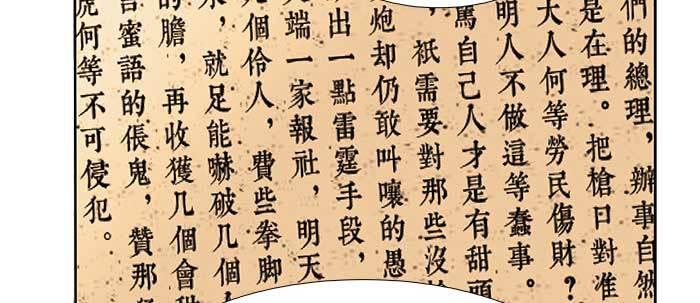 們的總理，辦事自然
是在理。把槍口對準
大人何等勞民傷財？
明人不做這等蠢事。
罵自己人才是有甜頭
，祇需要對那些沒
炮却仍敢叫嚷的愚
出一點雷霆手段，
端一家報社，明天
几個伶人，費些拳脚
，就足能嚇破几個
的膽，再收獲几個會
言蜜語的倀鬼，贊那
虎何等不可侵犯。